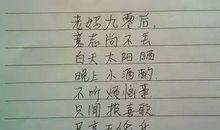 老妈九零后,
意志尚不丢
白天太阳晒
晚上小酒酌.
不听烦恼事
只闻报喜歌